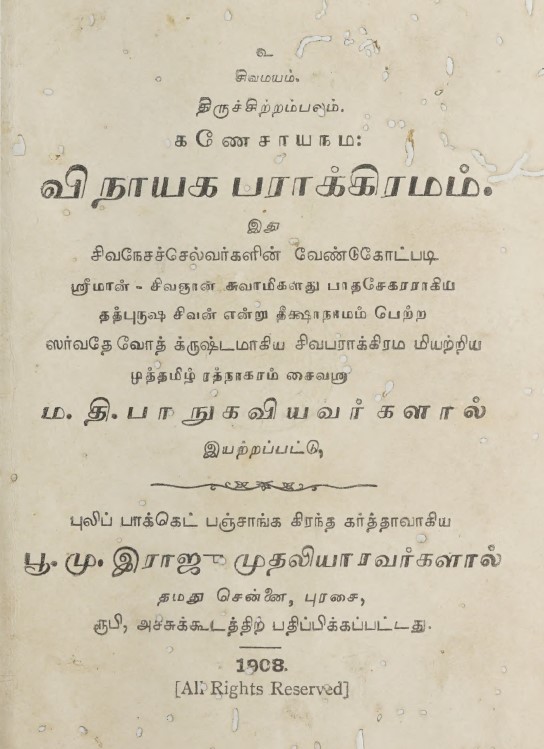 உ
சிவமயம்.
திருச்சிற்றம்பலம்.
கணேசாயநம:
விநாயக பராக்கிரமம்.
இது
சிவநேசச்செல்வர்களின் வேண்டுகோட்படி
ஸ்ரீமான் - சிவஞான சுவாமிகளது பாதசேகரராகிய
தத்புருஷ சிவன் என்று தீக்ஷாநாமம் பெற்ற
ஸர்வதேவோத் க்ருஷ்டமாகிய சிவபராக்கிரம மியற்றிய
முத்தமிழ் ரத்நாகரம் சைவஸ்ரீ
ம. தி. பாநுகவியவர்களால்
இயற்றப்பட்டு,
புலிப் பாக்கெட் பஞ்சாங்க கிரந்த கர்த்தாவாகிய
பூ. மு. இராஜு முதலியாரவர்களால்
தமது சென்னை, புரசை,
ரூபி, அச்சுக்கூடத்திற் பதிப்பிக்கப்பட்டது.
1908.
[All Rights Reserved]